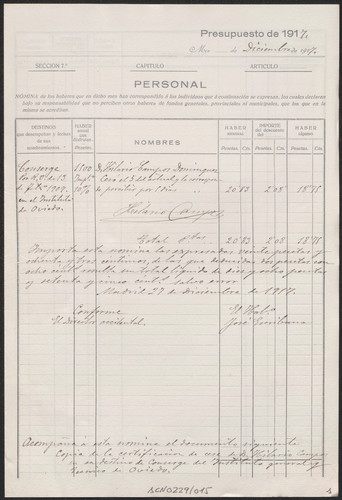 Presupuesto de 1917.
Mes de Diciembre de 1917.
SECCIÓN 7.ª CAPÍTULO ARTÍCULO
PERSONAL
NÓMINA de los haberes que en dicho mes han correspondido á los individuos que á continuación se expresan, los cuales declaran
bajo su responsabilidad que no perciben otros haberes de fondos generales, provinciales ni municipales, que los que en la
misma se acreditan
DESTINOS
que desempeñan y fechas
de sus
nombramientos
HABER
anual que
disfrutan.
Pesetas.
NOMBRES
HABER
íntegro.
Pesetas. Cts.
IMPORTE
del descuento
del
Pesetas. Cts.
HABER
líquido.
Pesetas. Cts.
Conserge
por R. O. de 13
de 1909.
en el Instituto
de Oviedo.
10 %
D. Hilario Campos Dominguez
20 83 2 08 18 75
Hilario Campos
Total Ptas 20 83 2 08 18 75
Importa esta nomina las expresadas veinte pesetas y
ochenta y tres centimos, de las que deducidas dos pesetas con
ocho cent.s resulta un total liquido de diez y ocho pesetas
y setenta y cinco cent.s salvo error
Madrid 27 de diciembre de 1917.
Conforme
El Director accidental.
El Hab.º
José
Acompaña a esta nomina el documento siguiente
Copia de la certificación de cese de D. Hilario Campos
en su destino de Conserge del Instituto general y
Tecnico de Oviedo.
BCN0229/015
1